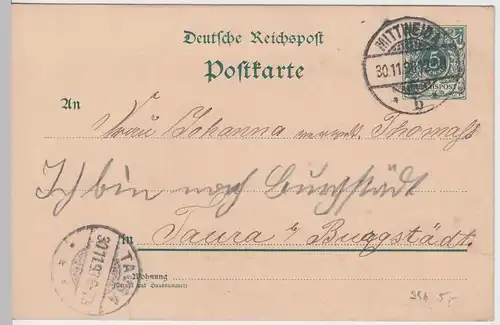 Deutsche Reichspost
Postkarte
MITTWEIDA
30.11.9
b
5
REICHSPOST
An
Frau Johanna verw. Thomas
Ich bin nach Burgstädt
in Taura b/ Burgstädt.
TAURA
30.11.9
Wohnung
(Straße und Hausnummer)
5,-